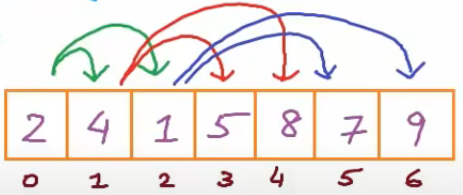 2 4 1 5 8 7 9
0 1 2 3 4 5 6